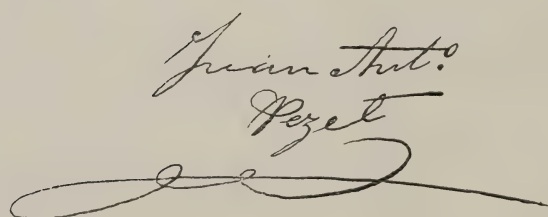 Juan Ant.º
Pezet